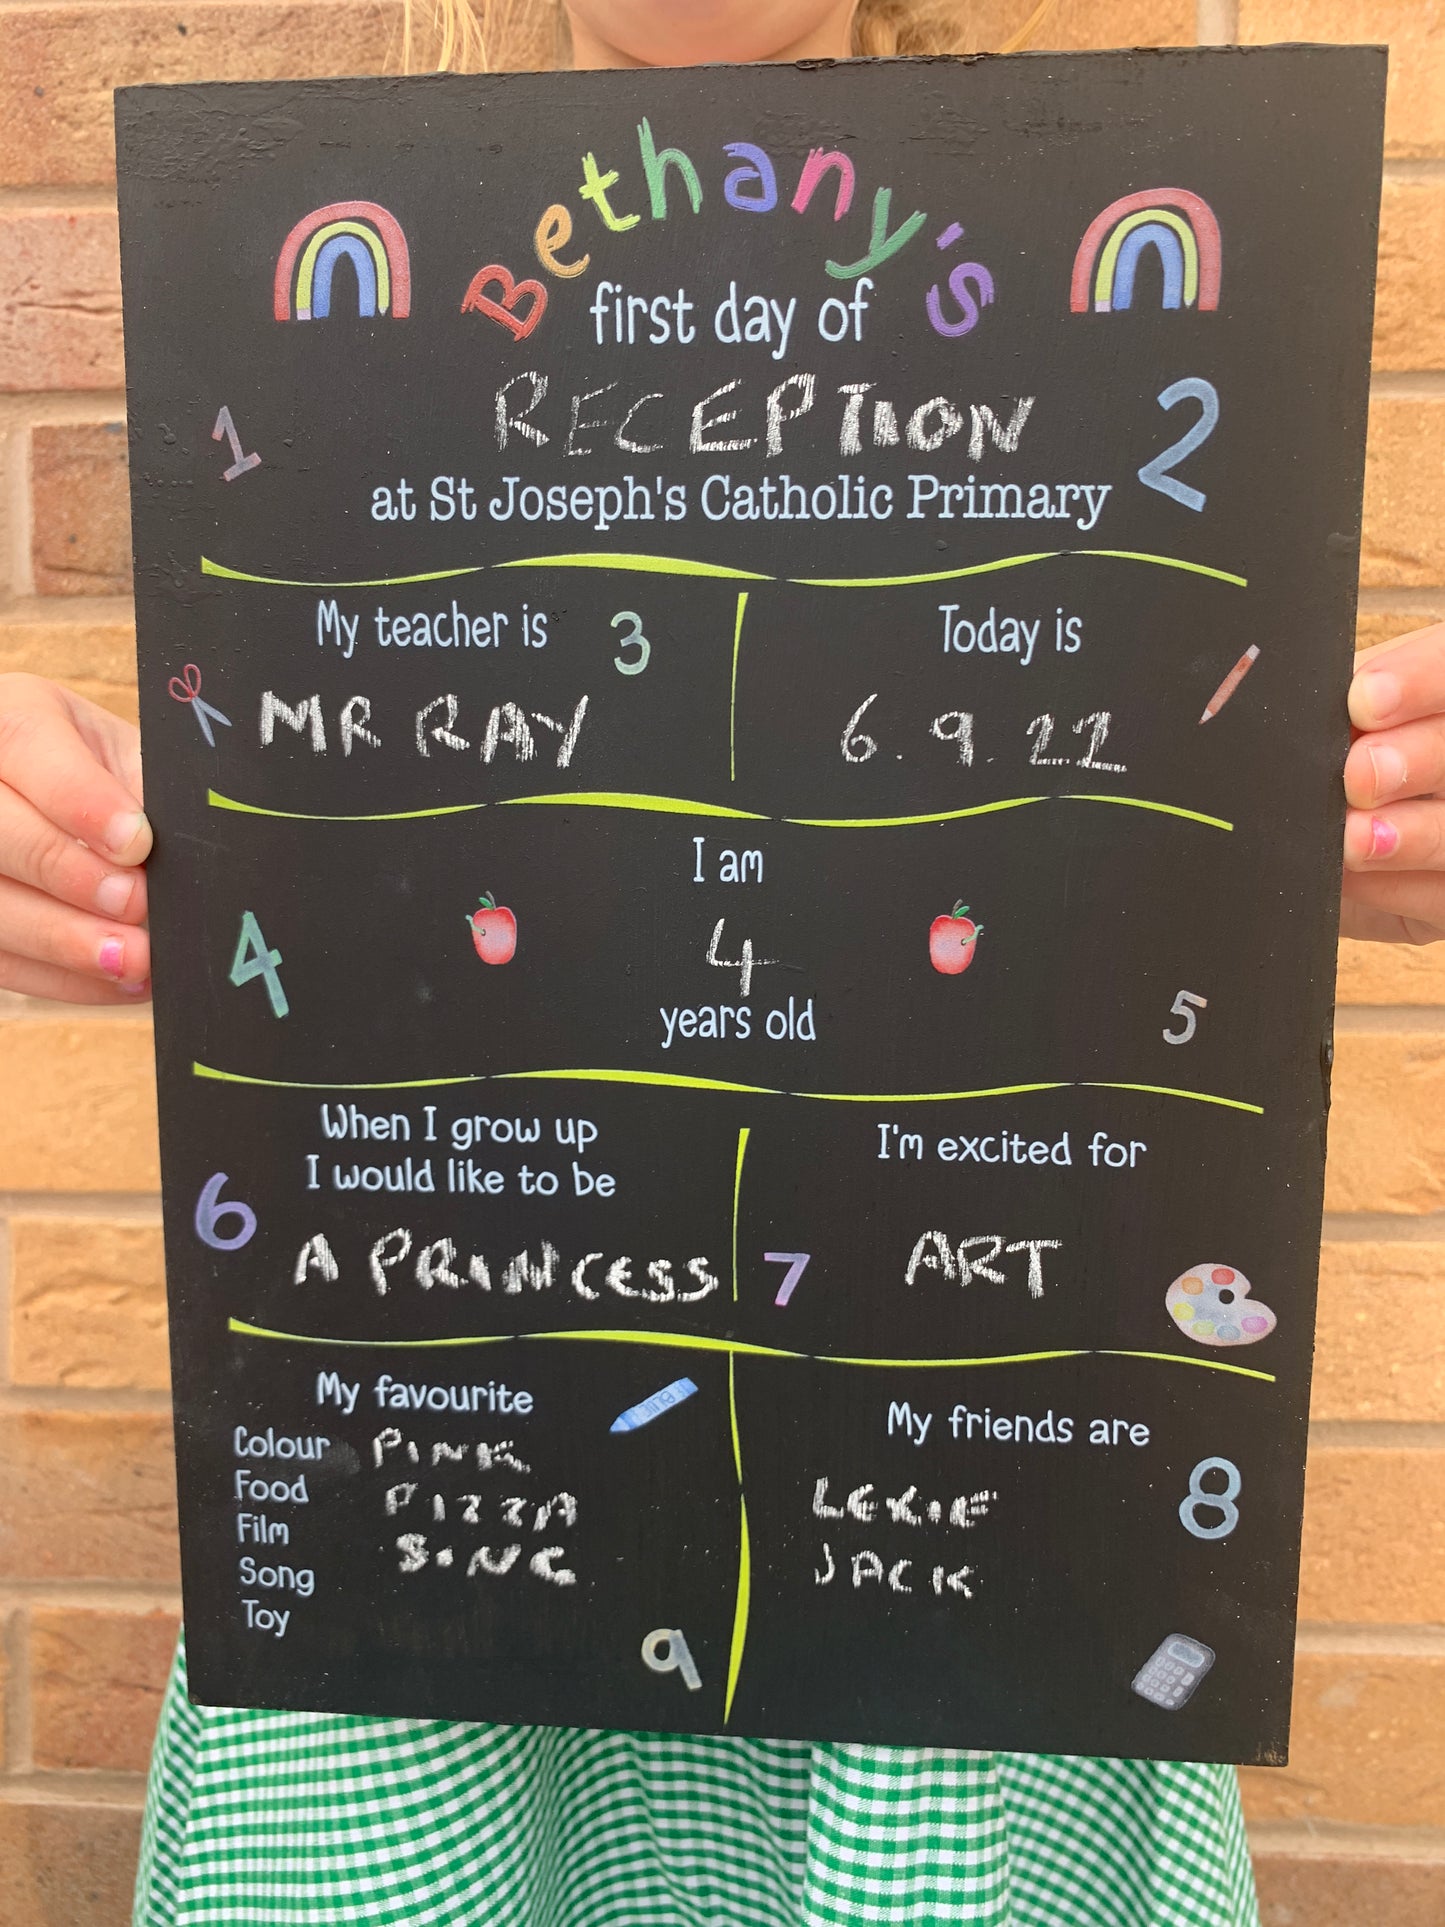 Bethany's
first day of
RECEPTION
1
2
at St Joseph's Catholic Primary
My teacher is
3
MR RAY
Today is
6.9.22
I am
4
4
years old
5
When I grow up
I would like to be
6
A PRINCESS
I'm excited for
7
ART
My favourite
BLUE
Colour PINK
Food PIZZA
Film SING
Song
Toy
9
My friends are
8
LEXIE
JACK